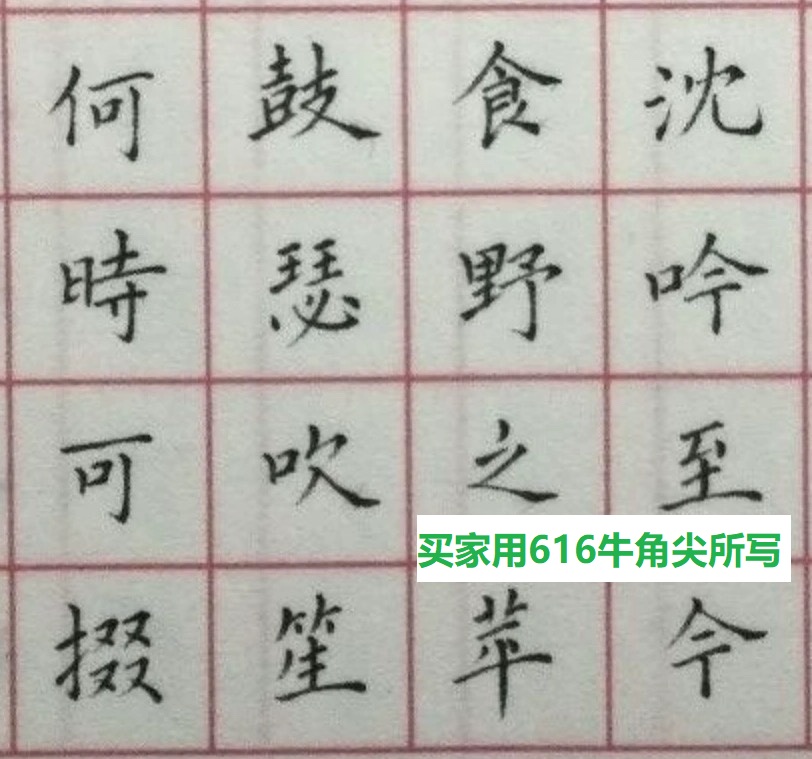 沈吟至今
食野之苹
鼓瑟吹笙
何時可掇
买家用616牛角尖所写